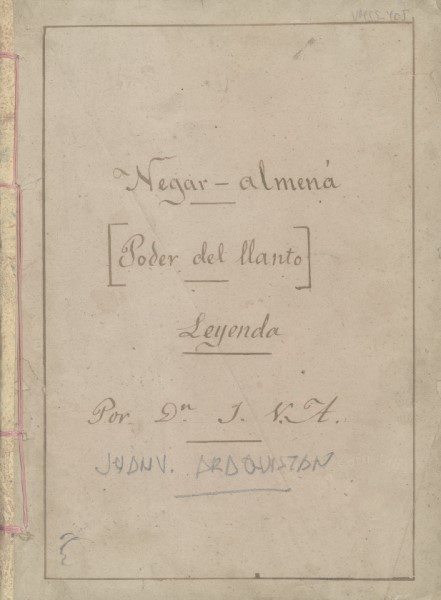 Negar - almená
[Poder del llanto]
Leyenda
Por Dn J. V. A.
JUAN V. ARAQUISTAIN